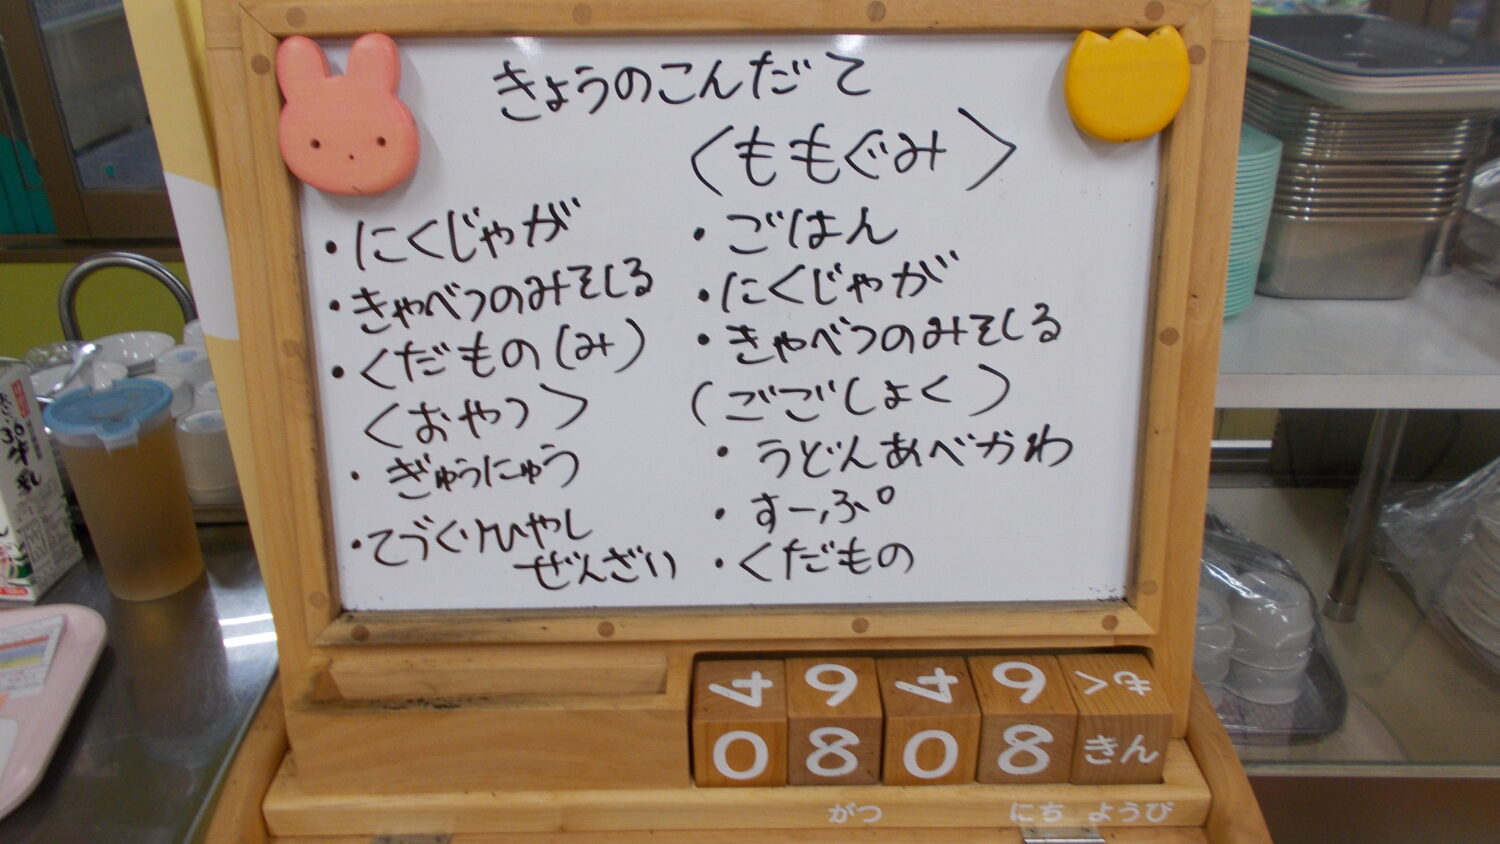 きょうのこんだて
・にくじゃが
・きゃべつのみそしる
・くだもの(み)
〈おやつ〉
・ぎゅうにゅう
・てづくりひやし
ぜんざい
〈ももぐみ〉
・ごはん
・にくじゃが
・きゃべつのみそしる
(ごごしょく)
・うどんあべかわ
・すーぷ
・くだもの
4 9 4 9 もく
0 8 0 8 きん
がつ にち ようび
牛乳